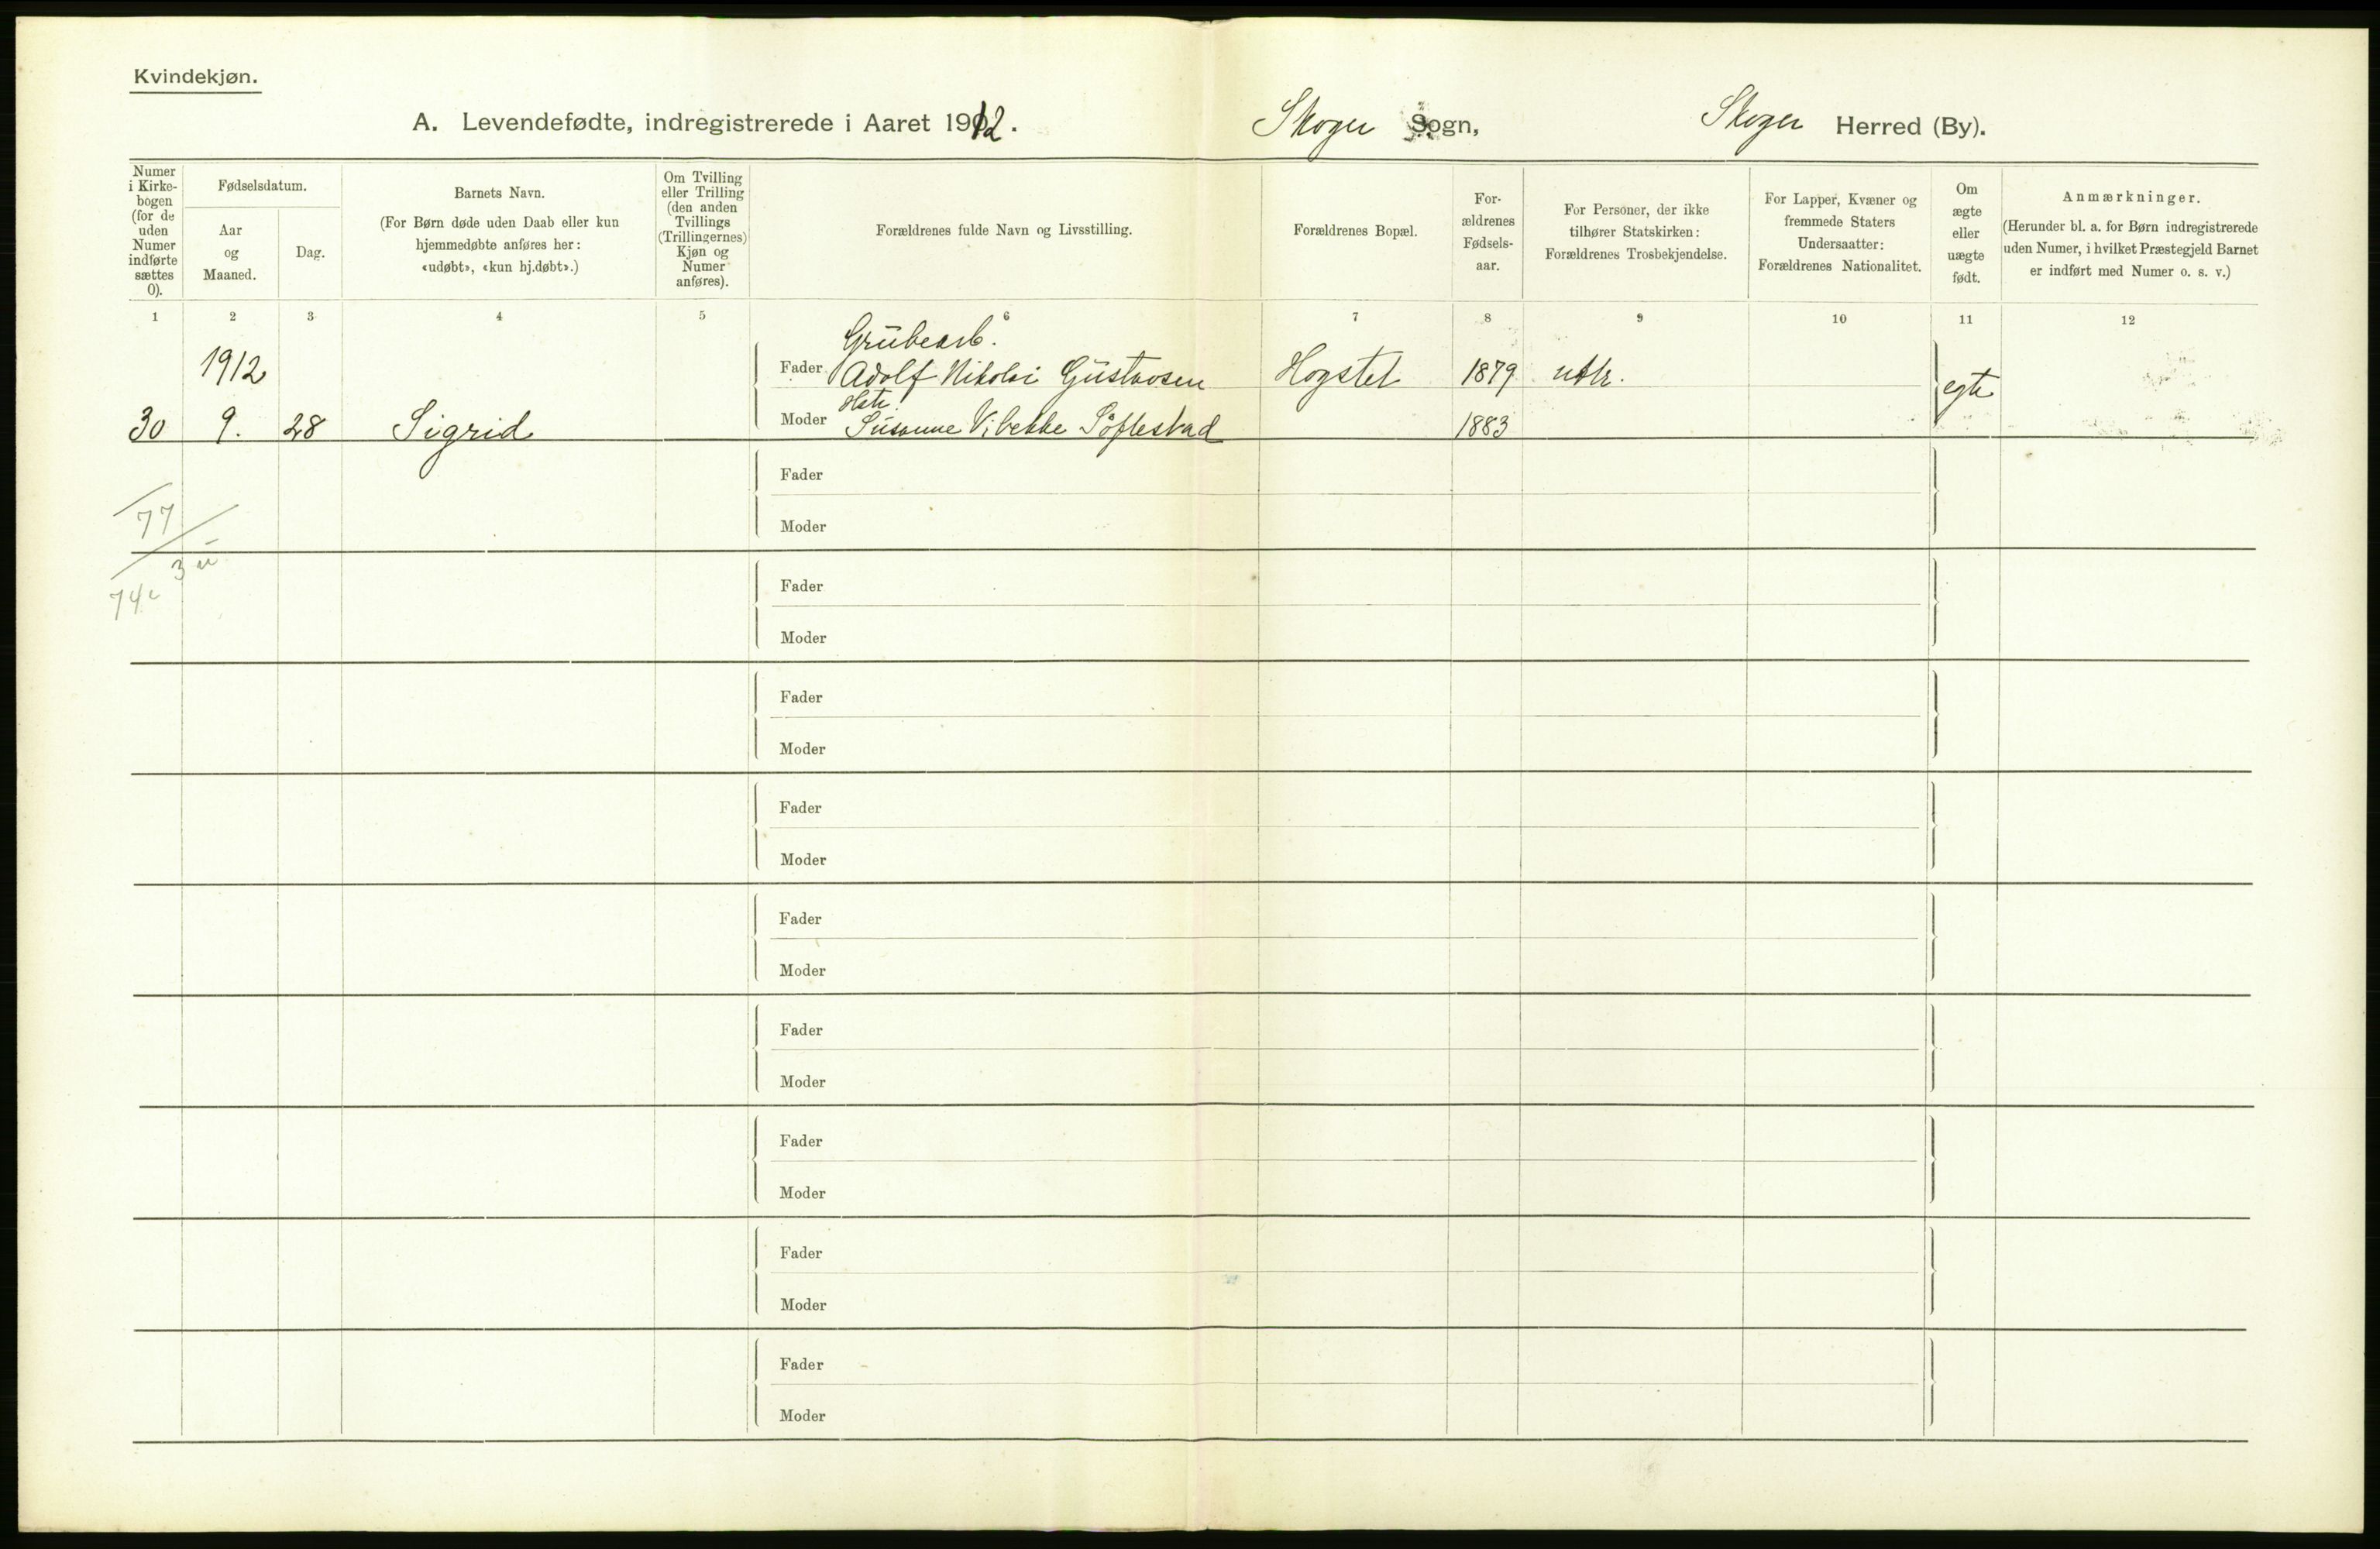 Kvindekjøn.
A. Levendefødte, indregistrerede i Aaret 1912.
Skoger Sogn,
Skoger Herred (By).
Numer i Kirke-bogen (for de uden Numer indførte sættes 0).
Fødselsdatum.
Aar og Maaned.
Dag.
Barnets Navn.
(For Børn døde uden Daab eller kun
hjemmedøbte anføres her:
«udøbt», «kun hj.døbt».)
Om Tvilling
eller Trilling
(den anden
Tvillings
(Trillingernes)
Kjøn og
Numer
anføres).
Forældrenes fulde Navn og Livsstilling.
Forældrenes Bopæl.
For-
ældrenes
Fødsels-
aar.
For Personer, der ikke
tilhører Statskirken:
Forældrenes Trosbekjendelse.
For Lapper, Kvæner og
fremmede Staters
Undersaatter:
Forældrenes Nationalitet.
Om
ægte
eller
uægte
født.
Anmærkninger.
(Herunder bl. a. for Børn indregistrerede
uden Numer, i hvilket Præstegjeld Barnet
er indført med Numer o. s. v.)
1 2 3 4 5 6 7 8 9 10 11 12
Grubearb.
1912 Fader Adolf Nikolai Gustavsen Hogstet 1879 egte
30 9. 28 Sigrid Moder Susanne Vibekke Søftestad 1883
Fader
77
Moder
3
Fader
74
Moder
Fader
Moder
Fader
Moder
Fader
Moder
Fader
Moder
Fader
Moder
Fader
Moder
Fader
Moder